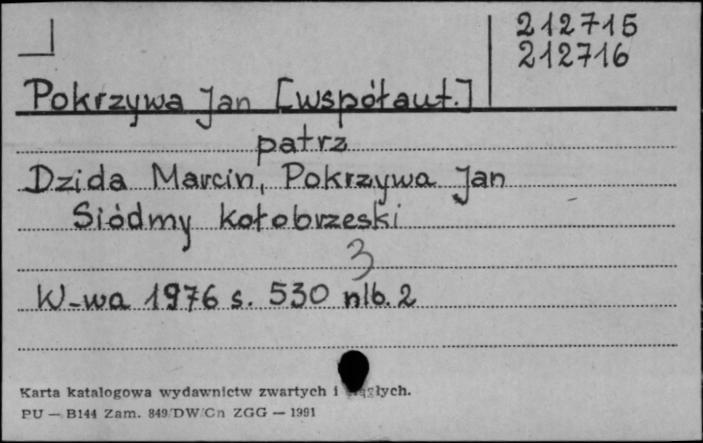 212715
212716
Pokrzywa Jan [współaut.]
patrz
Dzida Marcin, Pokrzywa Jan
Siódmy kołobrzeski
3
W-wa 1976 s. 530 nlb. 2
Karta katalogowa wydawnictw zwartych i
PU — B144 Zam. 849/DW/Cn ZGG — 1991